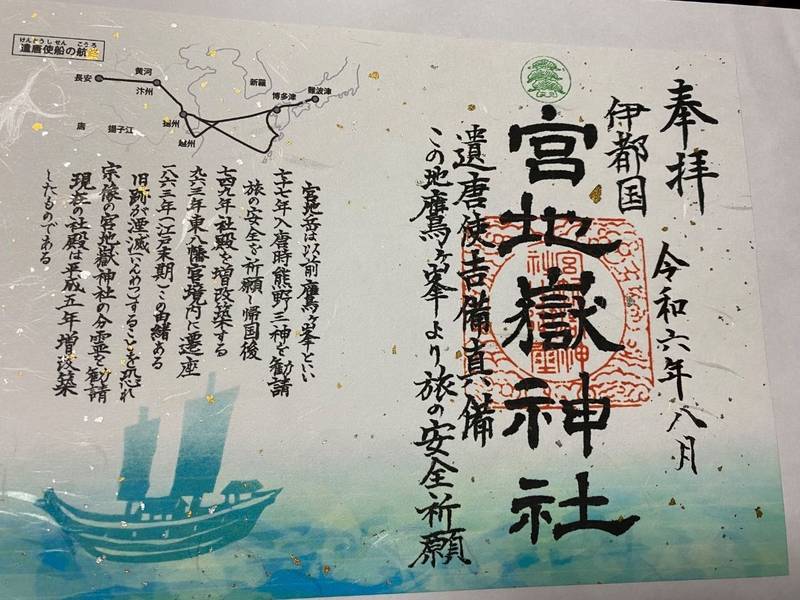 奉拝
伊都国
令和六年八月
宮地嶽神社
遣唐使吉備真備
この地鷹ヶ峯より旅の安全祈願
けんとうしせん こうろ
遣唐使船の航
長安
黄河
汴州
新羅
博多津
難波津
唐
揚子江
揚州
越州
宮地岳は以前鷹ヶ峯といい
七一七年入唐時熊野三神を勧請
旅の安全を祈願し帰国後
七四九年社殿を増改築する
九六三年東八幡宮境内に遷座
一八六三年(江戸末期)この由緒ある
旧跡が湮滅(いんめつ)することを恐れ
宗像の宮地嶽神社の分霊を勧請
現在の社殿は平成五年増改築
したものである